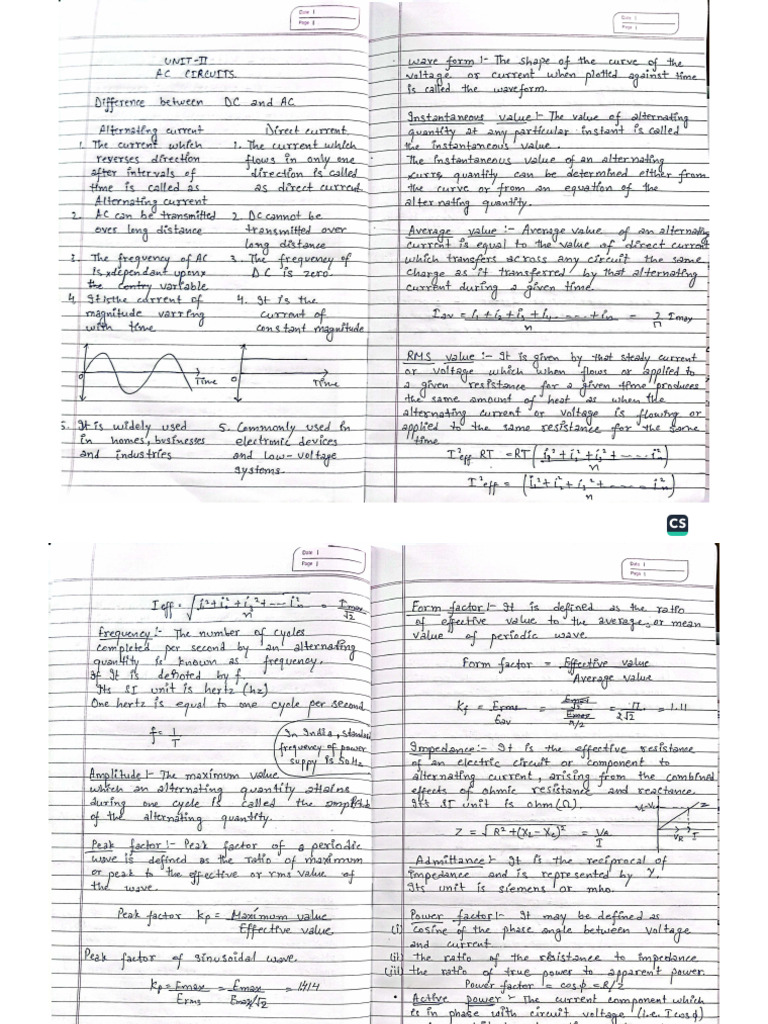 Date
Page
UNIT-II
AC CIRCUITS
Difference between DC and AC
Alternating current
1. The current which
reverses direction
after intervals of
time is called as
Alternating current
2. AC can be transmitted
over long distance
3. The frequency of AC
is dependent upon
the country variable
4. It is the current of
magnitude varring
with time
0 Time
5. It is widely used
in homes, businesses
and industries
Direct current
1. The current which
flows in only one
direction is called
as direct current
2. DC cannot be
transmitted over
long distance
3. The frequency of
DC is zero.
4. It is the
current of
constant magnitude
0 Time
5. Commonly used in
electronic devices
and low-voltage
systems.
Date
Page
wave form :- The shape of the curve of the
voltage or current when plotted against time
is called the waveform.
Instantaneous value :- The value of alternating
quantity at any particular instant is called
the instantaneous value.
The instantaneous value of an alternating
quantity can be determined either from
the curve or from an equation of the
alternating quantity.
Average value :- Average value of an alternating
current is equal to the value of direct current
which transfers across any circuit the same
charge as it transferred by that alternating
current during a given time.
Iav = i1 + i2 + i3 + i4 ..... + in / n = 2/π Imax
RMS value :- It is given by that steady current
or voltage which when flows or applied to
a given resistance for a given time produces
the same amount of heat as when the
alternating current or voltage is flowing or
applied to the same resistance for the same
time
I²eff RT = RT (i1² + i2² + i3² + ..... in² / n)
I²eff = (i1² + i2² + i3² + ..... in² / n)
CS
Date
Page
Ieff = √(i1² + i2² + i3² + .... in² / n) = Imax/√2
Frequency :- The number of cycles
completed per second by an alternating
quantity is known as frequency.
It is denoted by f.
Its SI unit is hertz (hz)
One hertz is equal to one cycle per second
f = 1/T
In India, standard
frequency of power
suppy is 50Hz
Amplitude :- The maximum value
which an alternating quantity attains
during one cycle is called the amplitude
of the alternating quantity.
Peak factor :- Peak factor of a periodic
wave is defined as the ratio of maximum
or peak to the effective or rms value of
the wave.
Peak factor Kp = Maximum value / Effective value
Peak factor of sinusoidal wave.
Kp = Emax/Erms = Emax/Emax/√2 = 1.414
Date
Page
Form factor :- It is defined as the ratio
of effective value to the average, or mean
value of periodic wave.
Form factor = Effective value / Average value
Kf = Erms/Eav = Emax/√2 / Emax/π/2 = π/2√2 = 1.11
Impedance :- It is the effective resistance
of an electric circuit or component to
alternating current, arising from the combined
effects of ohmic resistance and reactance.
Its SI unit is ohm (Ω).
Z = √R² + (XL - XC)² = V/I
VL-VC Z
VR I
Admittance :- It is the reciprocal of
impedance and is represented by Y.
Its unit is siemens or mho.
Power factor :- It may be defined as
(i) cosine of the phase angle between voltage
and current
(ii) the ratio of the resistance to impedance
(iii) the ratio of true power to apparent power.
Power factor = cosφ = R/Z
• Active power :- The current component which
is in phase with circuit voltage (i.e. I cosφ)